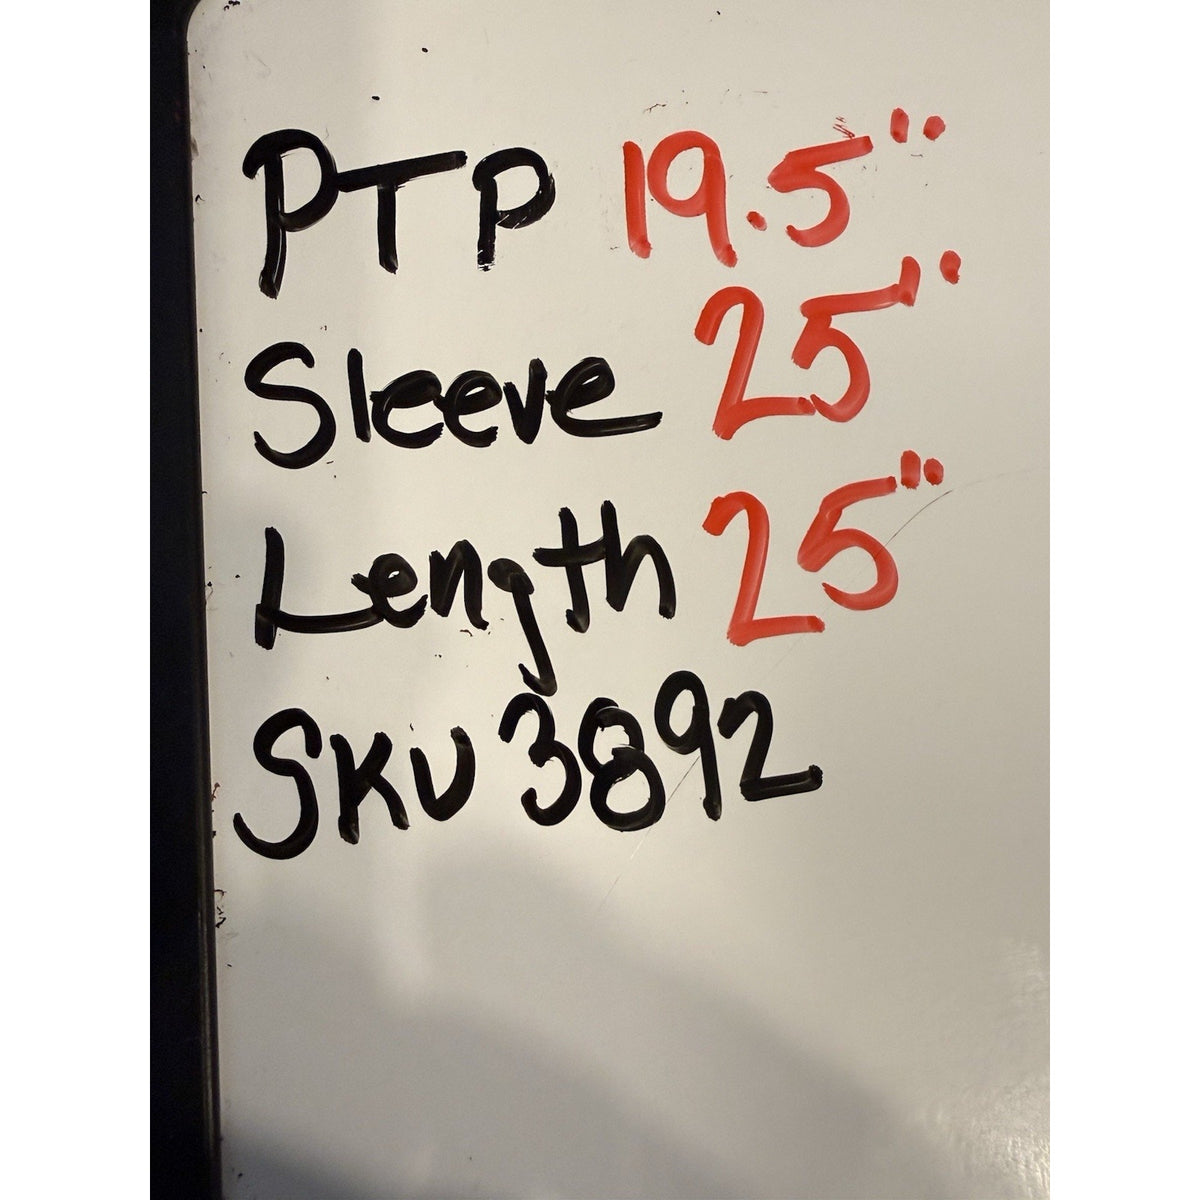 PTP 19.5"
Sleeve 25"
Length 25"
SKU 3892